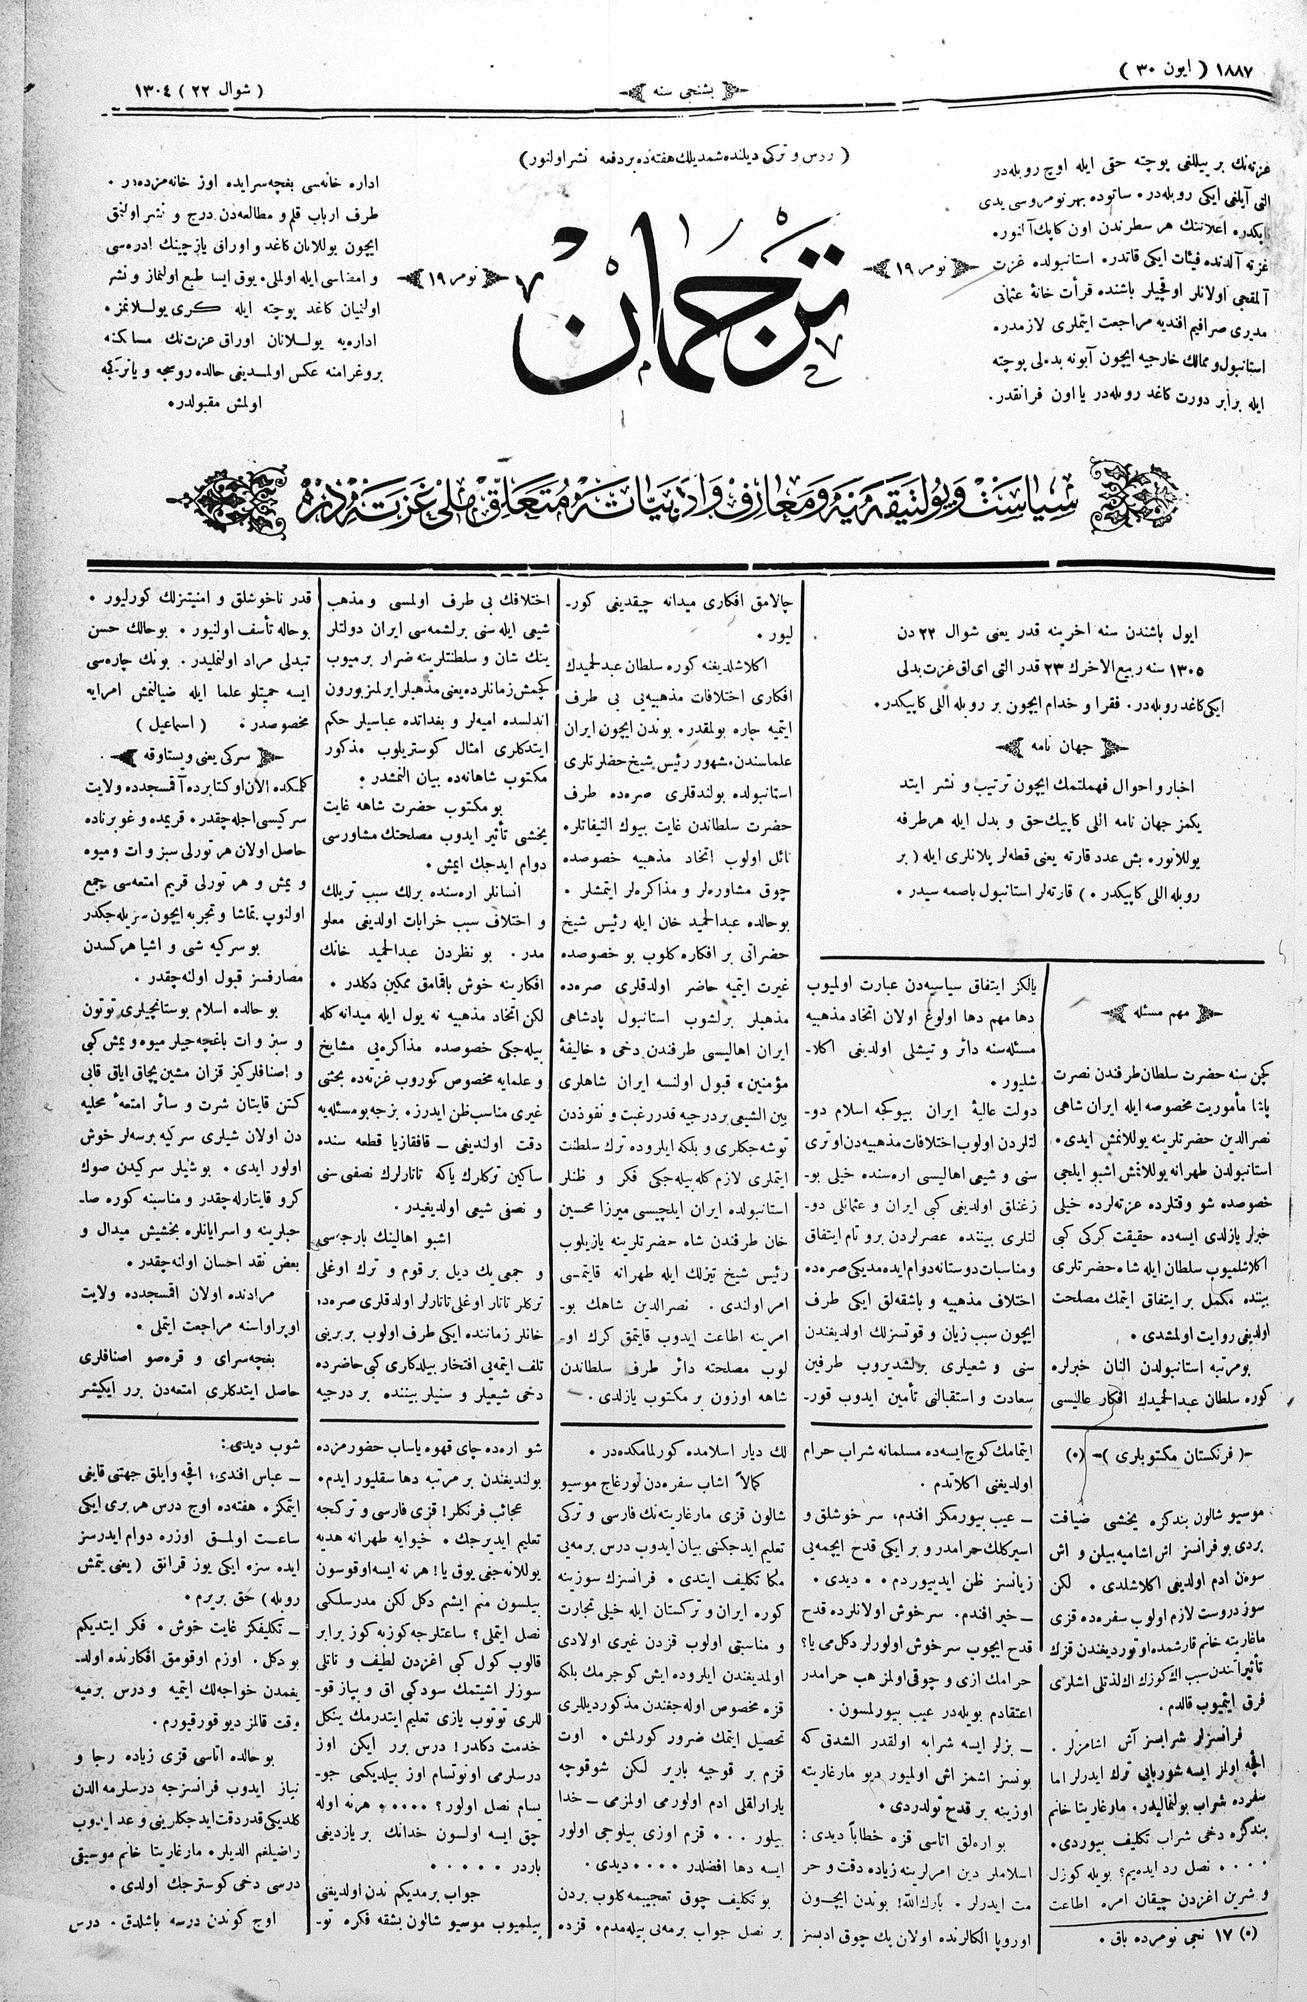 ١٨٨٧ ( ايون ٣٠ )
بشنجى سنه
( شوال ٢٢ ) ١٣٠٤
( روس و تركى ديلنده شمديلك هفته‌ده بر دفعه نشر اولنور )
غزته‌نك بر ييللغى پوچته حقى ايله اوچ روبله‌در
التى آيلغى ايكى روبله‌در. ساتوده بهر نومروسى يدى
كاپكدر. اعلاننك هر سطرندن اون كاپك آلنور.
غزته آلدنده فيئات ايكى قاتدر. استانبولده غزت
آلمقجى اولانلر اوقجيلر باشنده قرأت خانهٔ عثمانى
مديرى صرافيم افنديه مراجعت ايتملرى لازمدر.
استانبول و ممالك خارجيه ايچون آبونه بدلى پوچته
ايله برابر دورت كاغد روبله‌در يا اون فرانقدر.
نومر ١٩
ترجمان
نومر ١٩
اداره خانه‌سى بغچه‌سرايده اوز خانه‌مزده‌در .
طرف ارباب قلم و مطالعه‌دن درج و نشر اولنمق
ايچون يوللانان كاغد و اوراق يازيچينك ادره‌سى
و امضاسى ايله اولملى. يوق ايسا طبع اولنماز و نشر
اولنميان كاغد پوچته ايله كرى يوللانمز.
اداره‌يه يوللانان اوراق غزته‌نك مسلكنه
پروغرامنه عكس اولمديغى حالده روسجه و يا تركيجه
اولمش مقبولدر.
سياست و پولتيقه‌يه و معارف و ادبياته متعلق ملى غزته‌در
ايول باشندن سنه اخرينه قدر يعنى شوال ٢٢ دن
١٣٠٥ سنه ربيع الاخرك ٢٣ قدر التى اى‌لق غزت بدلى
ايكى كاغد روبله‌در. فقرا و خدام ايچون بر روبله اللى كاپيكدر.
جهان نامه
اخبار و احوال فهملتمك ايچون ترتيب و نشر ايتد
يكمز جهان نامه اللى كاپيك حق و بدل ايله هر طرفه
يوللانور. بش عدد قارته يعنى قطعه‌لر پلانلرى ايله ( بر
روبله اللى كاپيكدر . ) قارته‌لر استانبول باصمه سيدر .
مهم مسئله
كچن سنه حضرت سلطان طرفندن نصرت
پاشا مأموريت مخصوصه ايله ايران شاهى
نصرالدين حضرتلرينه يوللانمش ايدى.
استانبولدن طهرانه يوللانمش اشبو ايلچى
خصوصده شو وقتلرده غزته‌لرده خيلى
خبرلر يازلدى ايسه‌ده حقيقت كركى كبى
اكلاشلميوب سلطان ايله شاه حضرتلرى
بيننده مكمل بر ايتفاق ايتمك مصلحت
اولديغى روايت اولمشدى .
بو مرتبه استانبولدن النان خبرلره
كوره سلطان عبدالحميدك افكار عاليسى
يالكز ايتفاق سياسيه‌دن عبارت اولميوب
دها مهم دها اولوغ اولان اتخاد مذهبيه
مسئله‌سنه دائر و تيشلى اولديغى اكلا-
شليور .
دولت عاليهٔ ايران بيوكجه اسلام دو-
لتلردن اولوب اختلافات مذهبيه‌دن اوترى
سنى و شيعى اهاليسى اره‌سنده خيلى بو-
زغنلق اولديغى كبى ايران و عثمانلى دو-
لتلرى بيننده عصرلردن برو تام ايتفاق
و مناسبات دوستانه دوام ايده‌مديكى صره‌ده
اختلاف مذهبيه و باشقه‌لق ايكى طرف
ايچون سبب زيان و قوتسزلك اولديغندن
سنى و شعيلرى برلشديروب طرفين
سعادت و استقبالنى تأمين ايدوب قور-
چالامق افكارى ميدانه چيقديغى كور-
ليور .
اكلاشلديغنه كوره سلطان عبدالحميدك
افكارى اختلافات مذهبيه‌يى بى طرف
ايتميه چاره بولمقدر. بوندن ايچون ايران
علماسندن. شهور رئيس شيخ حضرتلرى
استانبولده بولندقلرى صره‌ده طرف
حضرت سلطاندن غايت بيوك التيفاتلره
نائل اولوب اتخاد مذهبيه خصوصده
چوق مشاوره‌لر و مذاكره‌لر ايتمشلر .
بو حالده عبدالحميد خان ايله رئيس شيخ
حضراتى بر افكاره كلوب بو خصوصده
غيرت ايتميه حاضر اولدقلرى صره‌ده
مذهبلر برلشوب استانبول پادشاهى
ايران اهاليسى طرفندن دخى « خاليفهٔ
مؤمنين » قبول اولنسه ايران شاهلرى
بين الشيعى بر درجيه قدر رغبت و نفوذدن
توشه‌جكلرى و بلكه ايلروده ترك سلطنت
ايتملرى لازم كله‌بيله‌جكى فكر و ظنلر
استانبولده ايران ايلچيسى ميرزا محسين
خان طرفندن شاه حضرتلرينه يازيلوب
رئيس شيخ تيزلك ايله طهرانه قايتمسى
امر اولندى . نصرالدين شاهك بو-
امرينه اطاعت ايدوب قايتمق كرك او-
لوب مصلحته دائر طرف سلطاندن
شاهه اوزون بر مكتوب يازلدى .
اختلافك بى طرف اولمسى و مذهب
شيعى ايله سنى برلشمه‌سى ايران دولتلر
ينك شان و سلطنتلرينه ضرار بر ميوب
كچمش زمانلرده يعنى مذهبلر ايرلمز بورون
اندلسده اميه‌لر و بغدادده عباسيلر حكم
ايتدكلرى امثال كوستريلوب مذكور
مكتوب شاهانه‌ده بيان النمشدر .
بو مكتوب حضرت شاهه غايت
يخشى تأثير ايدوب مصلحتك مشاورسى
دوام ايدجك ايمش .
انسانلر اره‌سنده برلك سبب تريلك
و اختلاف سبب خرابات اولديغى معلو
مدر. بو نظردن عبدالحميد خانك
افكارينه خوش باقمامق ممكين دكلدر .
لكن اتخاد مذهبيه نه يول ايله ميدانه كله
بيله‌جكى خصوصده مذاكره‌يى مشايخ
و علمايه مخصوص كوروب غزته‌ده بحثى
غيرى مناسب ظن ايدرز. بزجه بو مسئله‌يه
دقت اولنديغى - قافقازيا قطعه سنده
ساكين تركلرك ياكه تاتارلرك نصفى سنى
و نصفى شيعى اولديغيدر .
اشبو اهالينك بارجه‌سى
و جمى يك ديل بر قوم و ترك اوغلى
تركلر تاتار اوغلى تاتارلر اولدقلرى صره‌ده
خانلر زماننده ايكى طرف اولوب بربرينى
تلف ايتمه‌يى افتخار بيلدكلرى كبى حاضرده
دخى شيعيلر و سنيلر بيننده بر درجيه
قدر ناخوشلق و امنيتسزلك كورليور .
بو حاله تأسف اولنيور . بو حالك حسن
تبدلى مراد اولنمليدر. بونك چاره‌سى
ايسه حميتلو علما ايله ضيالنمش امرايه
مخصوصدر . ( اسماعيل )
سركى يعنى ويستاوقه
كلمكده الان اوكتابرده آقمسجدده ولايت
سركيسى اجله‌جقدر. قريمده و غوبرناده
حاصل اولان هر تورلى سبز و ات و ميوه
و يمش و هر تورلى قريم امتعه‌سى جمع
اولنوپ تماشا و تجربه ايچون -زيله‌جكدر
بو سركيه شى و اشيا هركسدن
مصارفسز قبول اولنه‌جقدر .
بو حالده اسلام بوستانچيلرى توتون
و سبز و ات باغچه‌جيلر ميوه و يمش كبى
و اصنافلركز قزان مشين پچاق اياق قابى
كتن قايتان شرت و سائر امتعهٔ محليه
دن اولان شيلرى سركيه برسه‌لر خوش
اولور ايدى . بو شيلر سركيدن صوك
كرو قايتارله‌جقدر و مناسبنه كوره صا-
حبلرينه و اسرايانلره بخشيش ميدال و
بعض نقد احسان اولنه‌جقدر .
مراد‌نده اولان اقمسجدده ولايت
اوپراواسنه مراجعت ايتملى .
بغچه‌سراى و قره‌صو اصنافلرى
حاصل ايتدكلرى امتعه‌دن برر ايكيشر
-( فرنكستان مكتوبلرى )- (٥)
موسيو شالون بندكزه يخشى ضيافت
بردى بو فرانسز اش اشاميه بيلن و اش
سوه‌ن ادم اولديغى اكلاشلدى . لكن
سوز دروست لازم اولوب سفره‌ده قزى
ماغاريته خانم قارشمده اوتورديغندن قزك
تأثيراتندن سبب اك كوزك اك لذتلى اشلرى
فرق ايتميوب قالدم .
فرانسزلر شرابسز آش اشامزلر .
اقچه اولمز ايسه شوربايى ترك ايدرلر اما
سفره‌ده شراب بولنماليدر. مارغاريتا خانم
بندكزه دخى شراب تكليف بيوردى.
. . . . نصل رد ايده‌يم؟ بويله كوزل
و شرين اغزدن چيقان امره اطاعت
(٥) ١٧ نجى نومرده باق .
ايتمامك كوچ ايسه‌ده مسلمانه شراب حرام
اولديغنى اكلاتدم .
ــ عيب بيورمكز افندم، سر خوشلق و
اسيركلك حرامدر و بر ايكى قدح ايچمه‌يى
زيانسز ظن ايديبوردم . . ديدى .
ــ خير افندم. سرخوش اولانلرده قدح
قدح ايچوب سر خوش اولورلر دكلمى يا؟
حرامك ازى و چوقى اولمز هب حرامدر
اعتقادم بويله‌در عيب بيورلمسون.
ــ بزلر ايسه شرابه اولقدر الشدق كه
بونسز اشمز اش اولميور ديو مارغاريته
اوزينه بر قدح تولدردى .
بو اره‌لق اتاسى قزه خطاباً ديدى :
اسلاملر دين امرلرينه زياده دقت و حر
مت ايدرلر . بارك‌الله! بوندن ايچون
اوروپا الكالرنده اولان بك چوق ادبسز
لك ديار اسلامده كورلمامكده‌در .
كمالاً اشاب سفره‌دن تورغاج موسيو
شالون قزى مارغاريته‌نك فارسى و تركى
تعليم ايدجكنى بيان ايدوب درس برمه‌يى
مكا تكليف ايتدى . فرانسزك سوزينه
كوره ايران و تركستان ايله خيلى تجارت
و مناسبتى اولوب قزدن غيرى اولادى
اولمديغندن ايلروده ايش كوجرمك بلكه
قزه مخصوص اوله جغندن مذكور ديللرى
تحصيل ايتمك ضرور كورلمش . اوت
قزم بر قوجيه بارير لكن شوقوچه
يارارلقلى ادم اولورمى اولمزمى ــ خدا
بيلور . . . قزم اوزى بيلوجى اولور
ايسه دها افضلدر . . . . ديدى .
بو تكليف چوق تعجيبمه كلوب بردن
بر نصل جواب برمه‌يى بيله‌مدم. قزده
شو اره‌ده چاى قهوه ياساب حضورمزده
بولنديغندن بر مرتبه دها سقليور ايدم.
عجائب فرنكلر! قزى فارسى و تركجه
تعليم ايديرجك . خيوايه طهرانه هديه
يوللانه‌جغى يوق يا! هر نه ايسه اوقوسون
بيلسون منم ايشم دكل لكن مدرسلكى
نصل ايتملى؟ ساعتلرجه كوزبه كوز برابر
قالوب كول كبى اغزدن لطيف و تاتلى
سوزلر اشيتمك سودكبى اق و بياز قو-
للرى توتوب يازى تعليم ايتدرمك ينكل
خدمت دكلدر! درس برر ايكن اوز
درسلرمى اونوتسام اوز بيلديكمى جو-
يسام نصل اولور؟ . . . . . هر نه اوله
چق ايسه اولسون خدانك بر يازديغى
باردر . . . . .
جواب برمديكم ندن اولديغنى
بيلميوب موسيو شالون بشقه فكره تو-
شوب ديدى:
ــ عباس افندى! اقچه و ايلق جهتنى قايغى
ايتمكز. هفته‌ده اوج درس هر برى ايكى
ساعت اولمق اوزره دوام ايدرسز
ايده سزه ايكى يوز قرانق (يعنى يتمش
روبله) حق بريرم .
ــ تكليفكز غايت خوش. فكر ايتديكم
بو دكل. اوزم اوقومق افكارنده اولد-
يغمدن خواجه‌لك ايتميه و درس برميه
وقت قالمز ديو قورقيورم .
بو حالده اتاسى قزى زياده رجا و
نياز ايدوب فرانسزجه درسلرمه الدن
كلديكى قدر دقت ايدجكلرينى و عد ايدوب
راضيلغم الديلر. مارغاريتا خانم موسيقى
درسى دخى كوسترجك اولدى .
اوج كوندن درسه باشلدق. درس